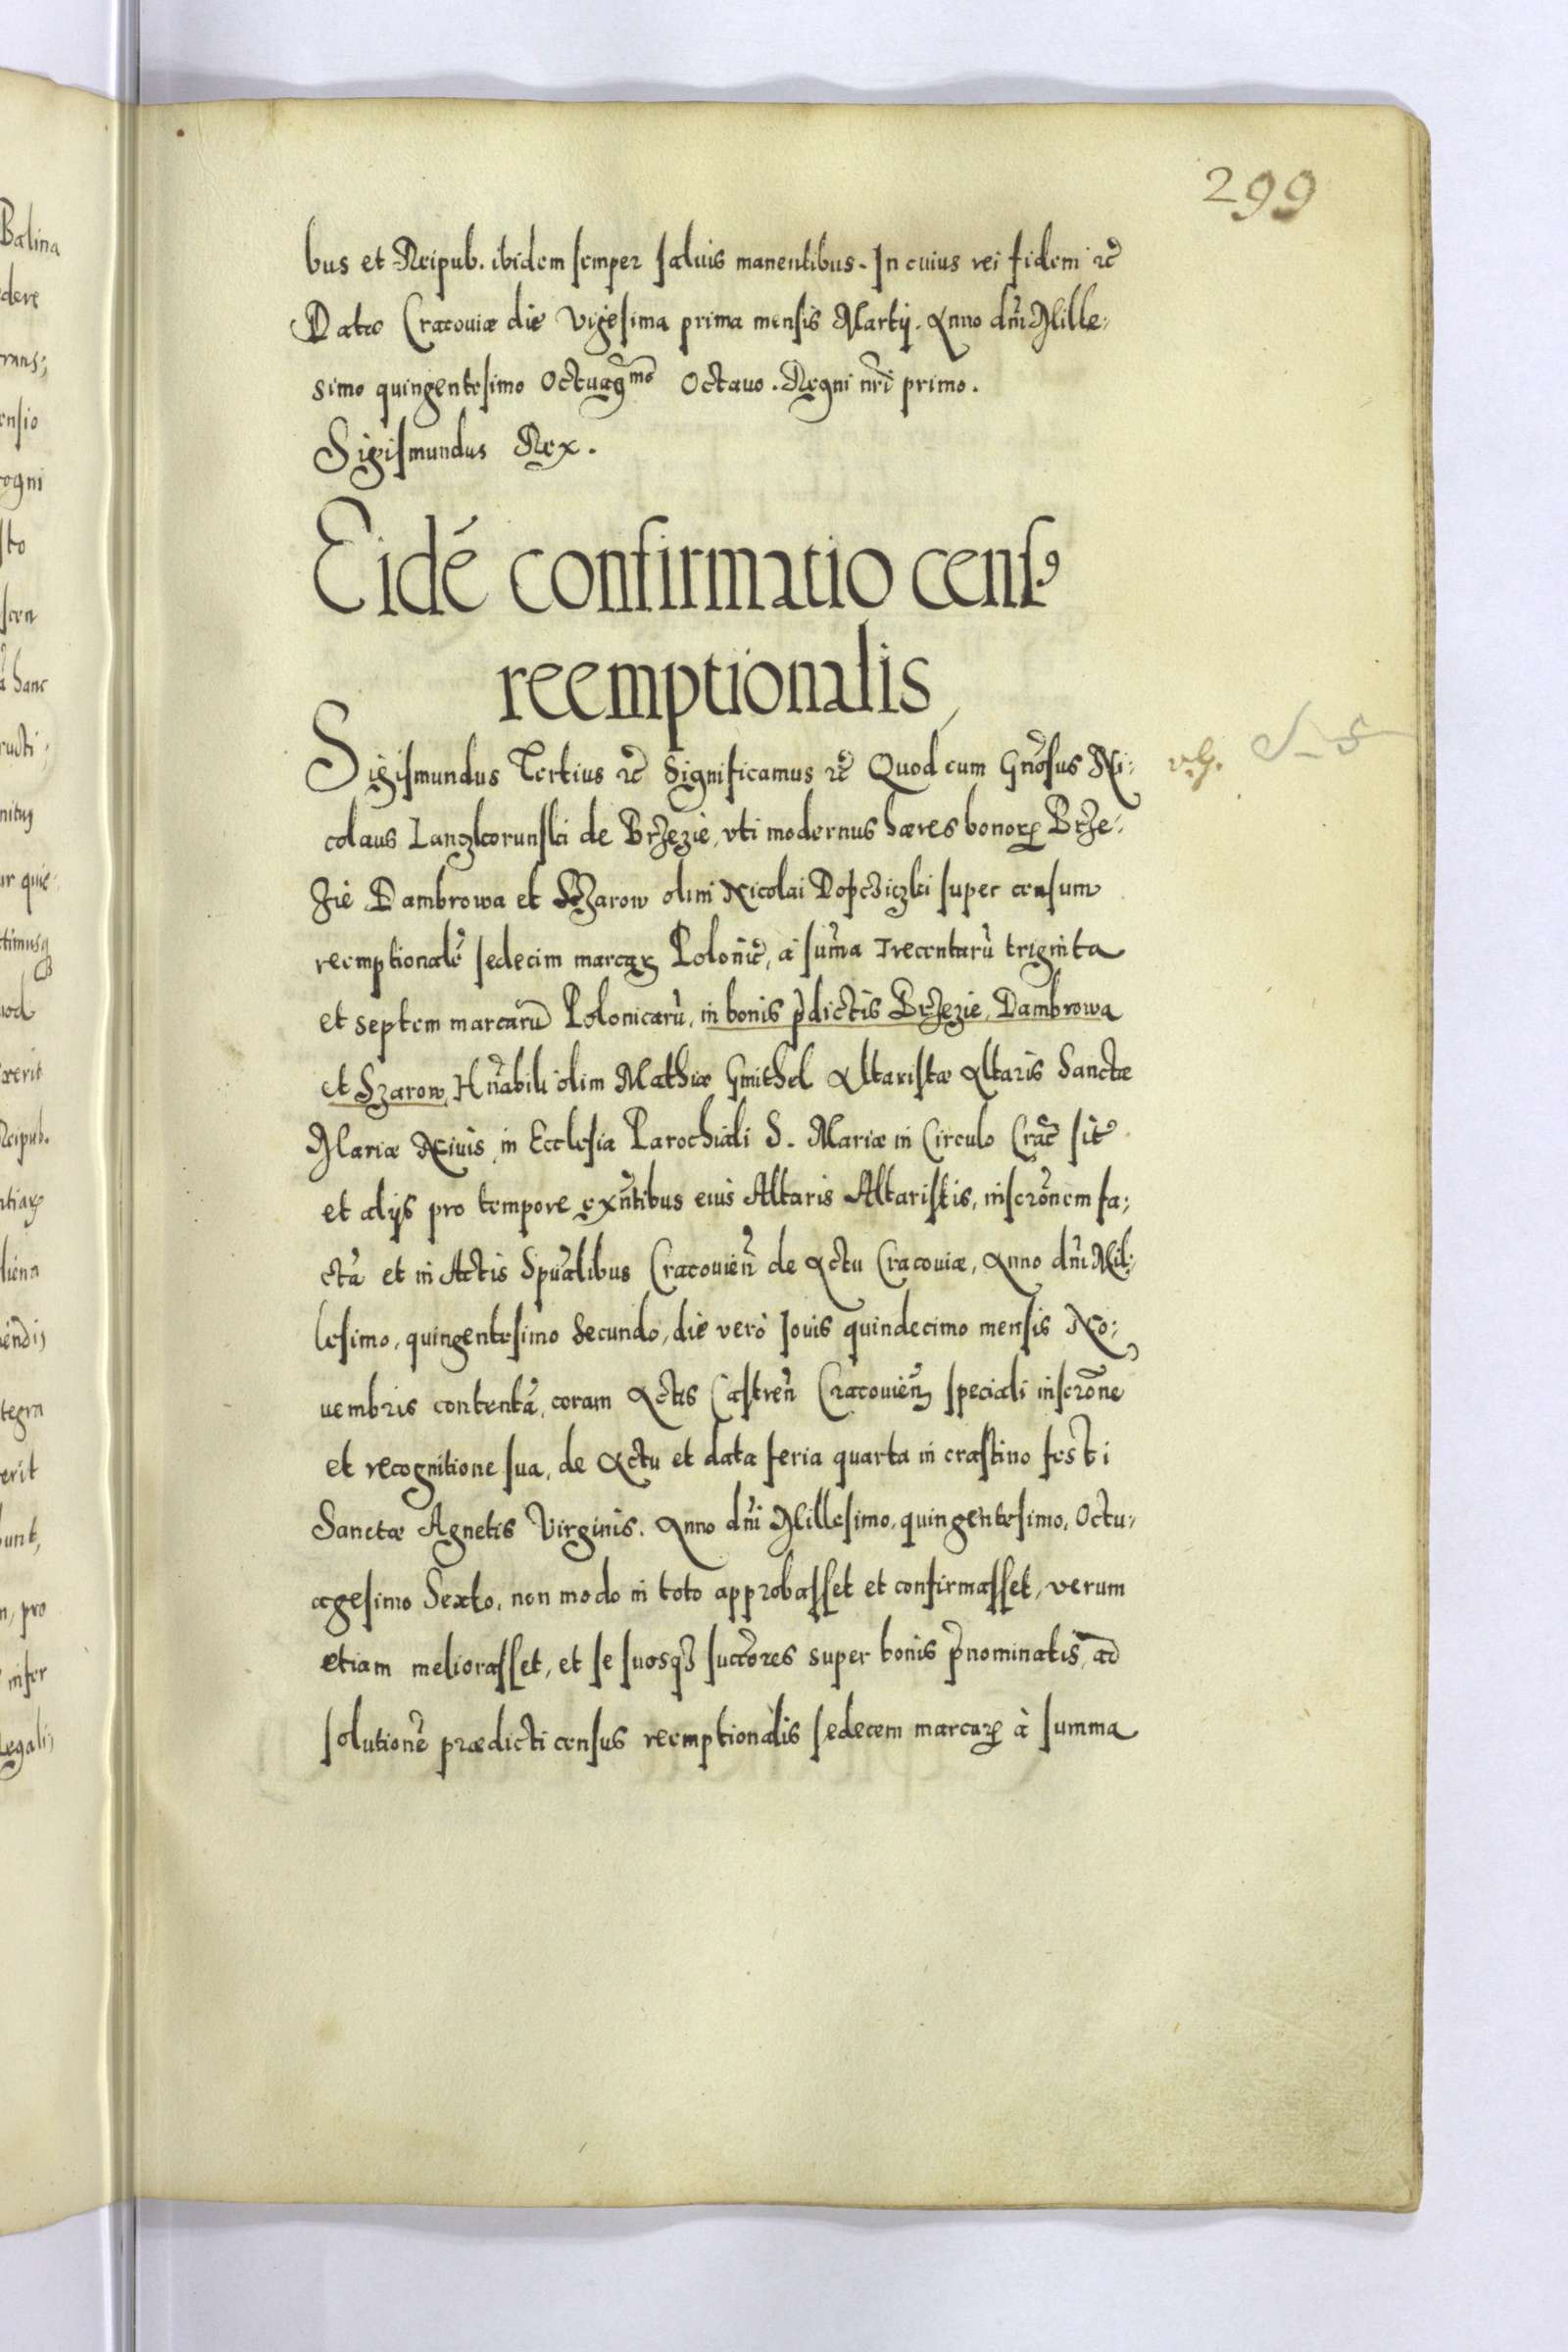 299
bus et Reipub. ibidem semper saluis manentibus. In cuius rei fidem ꝛc̃
Datæ Cracouiæ die Vigesima prima mensis Martij. Anno dñi Mille-
simo quingentesimo Octuag̃mo Octauo. Regni nr̃i primo.
Sigismundus Rex.
Eidé confirmatio censꝰ
reemptionalis
Sigismundus Tertius ꝛc̃ Significamus ꝛc̃ Quod cum Gñosus Ni-
colaus Lanczkorunski de Brzezie, vti modernus hæres bonoꝝ Brze-
zie Dambrowa et Szarow olim Nicolai super censum
reemptionalẽ sedecim marcaꝝ Polonic̃, à sum̃a Trecentarũ triginta
et septem marcarũ Polonicarũ, in bonis p̃dictis Brzezie, Dambrowa
et Szarow, Hñabili olim Mathiæ Gmithel Altaristæ Altaris Sanctæ
Mariæ Niuis, in Ecclesia Parochiali S. Mariæ in Circulo Crac̃ sit̃
et alijs pro tempore exñtibus eius Altaris Altaristis, inscrõnem fa-
ctã et in Actis Spũalibus Cracouieñ de Actu Cracouiæ, Anno dñi Mil-
lesimo, quingentesimo Secundo, die verò Iouis quindecimo mensis No-
uembris contentã, coram Actis Castreñ Cracouieñ speciali inscrõne
et recognitione sua, de Actu et data feria quarta in crastino festi
Sanctæ Agnetis Virginis. Anno dñi Millesimo, quingentesimo, Octu-
agesimo Sexto, non modo in toto approbasset et confirmasset, verum
etiam meliorasset, et se suosqꝫ succõres super bonis p̃nominatis, ad
solutionẽ prædicti census reemptionalis sedecem marcaꝝ à summa